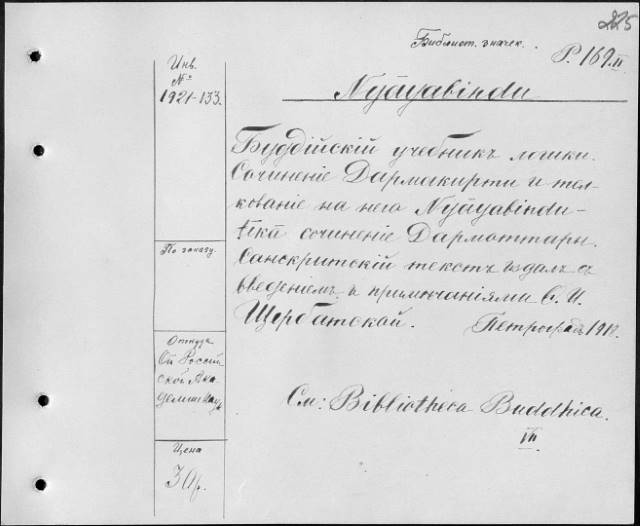 225
Библіот. значек.
P. 169 II
Инв.
№
1921-133.
Nyāyabindu
Буддійскій учебникъ логики.
Сочиненіе Дармакирти и тол-
кованіе на него Nyāyabindu-
tīkā сочиненіе Дармоттары.
Санскритскій текстъ издалъ съ
введеніемъ и примѣчаніями
Щербатской. Петроградъ
По заказу.
Откуда
От Россій
ской Ака
деміи Наук
См: Bibliotheca Buddhica.
VII.
Цена
30р.